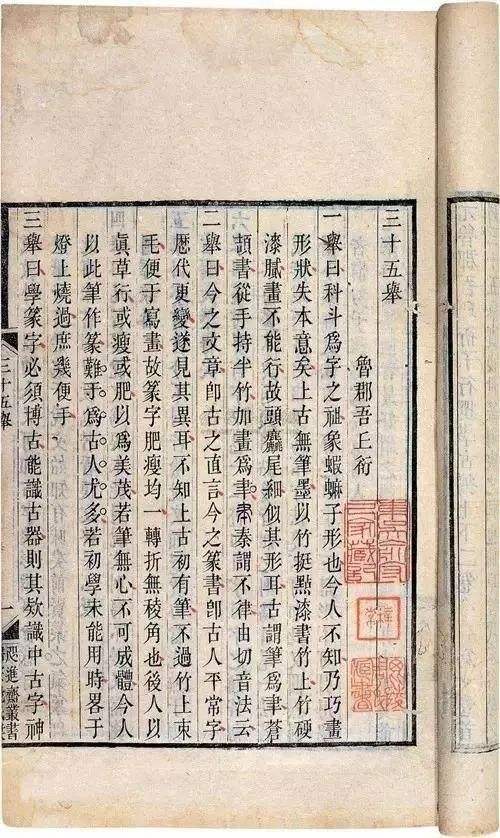 三十五舉
魯郡吾丘衍
一舉曰科斗爲字之祖象蝦蟆子形也今人不知乃巧畫
形狀失本意矣上古無筆墨以竹挺點漆書竹上竹硬
漆膩畫不能行故頭麤尾細似其形耳古謂筆爲聿蒼
頡書從手持半竹加畫爲聿聿秦謂不律由切音法云
二舉曰今之文章卽古之直言今之篆書卽古人平常字
歷代更變遂見其異耳不知上古初有筆不過竹上束
毛便于寫畫故篆字肥瘦均一轉折無稜角也後人以
眞草行或瘦或肥以爲美茂若筆無心不可成體今人
以此筆作篆難于爲古人尤多若初學未能用時畧于
燈上燒過庶幾便手
三舉曰學篆字必須博古能識古器則其欵識中古字神
三十五舉
一
咫進齋叢書